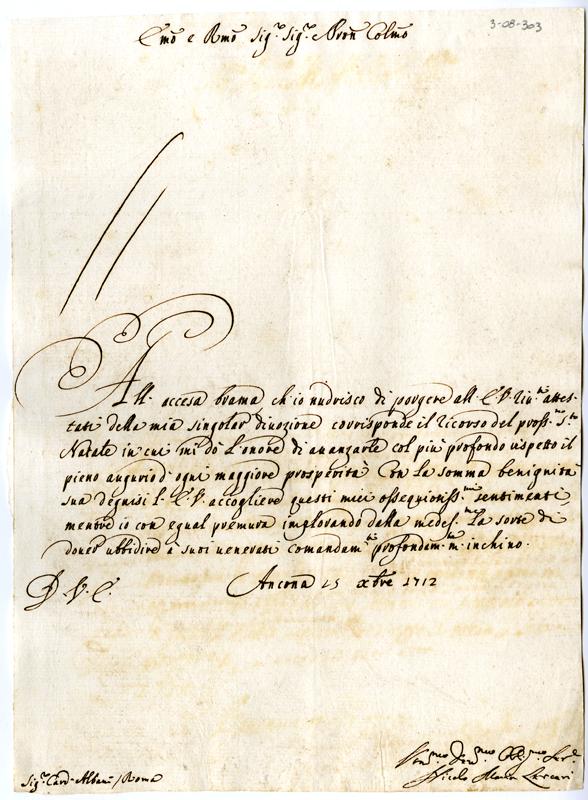 3-08-303
Emo e Rmo Sig.r Sig.r e Pron Colmo
All' accesa brama ch'io nudrisco di porgere all' E.V. riv.ti attes-
tati della mia singolar divozione corrisponde il ricorso del pross.mo S.to
Natale in cui mi dò l'onore di avanzarle col più profondo rispetto il
pieno augurio d'ogni maggiore prosperità. Con la somma benignità
sua degnisi l'E.V. accogliere questi miei ossequiosiss.mi sentimenti,
mentre io con egual premura implorando dalla medes.ma la sorte di
dover ubbidire a suoi venerati comandam.ti profondam.te m'inchino.
D. V. E.
Ancona 15 xbre 1712
Sig.r Card. Albani / Roma
Um.mo Dev.mo Obblig.mo Ser.
Nicolo Maria